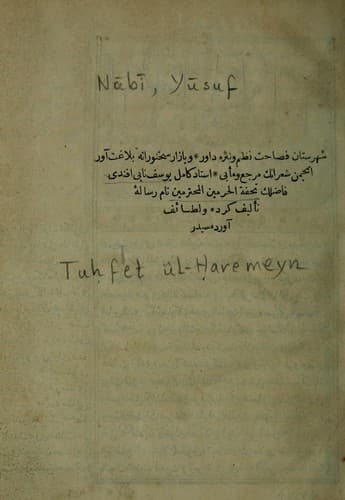 Nābī, Yūsuf
شهرستان فصاحت نظم ونثره داور * وبازار سخنورانه بلاغت آور
انجمن شعرانك مرجع ومآبى * استاد كامل يوسف نابى افندى
فاضلك تحفة الحرمين المحترمين نام رسالۀ
تأليف كرده ولطائف
آورده سيدر
Tuḥfet ül-Ḥaremeyn